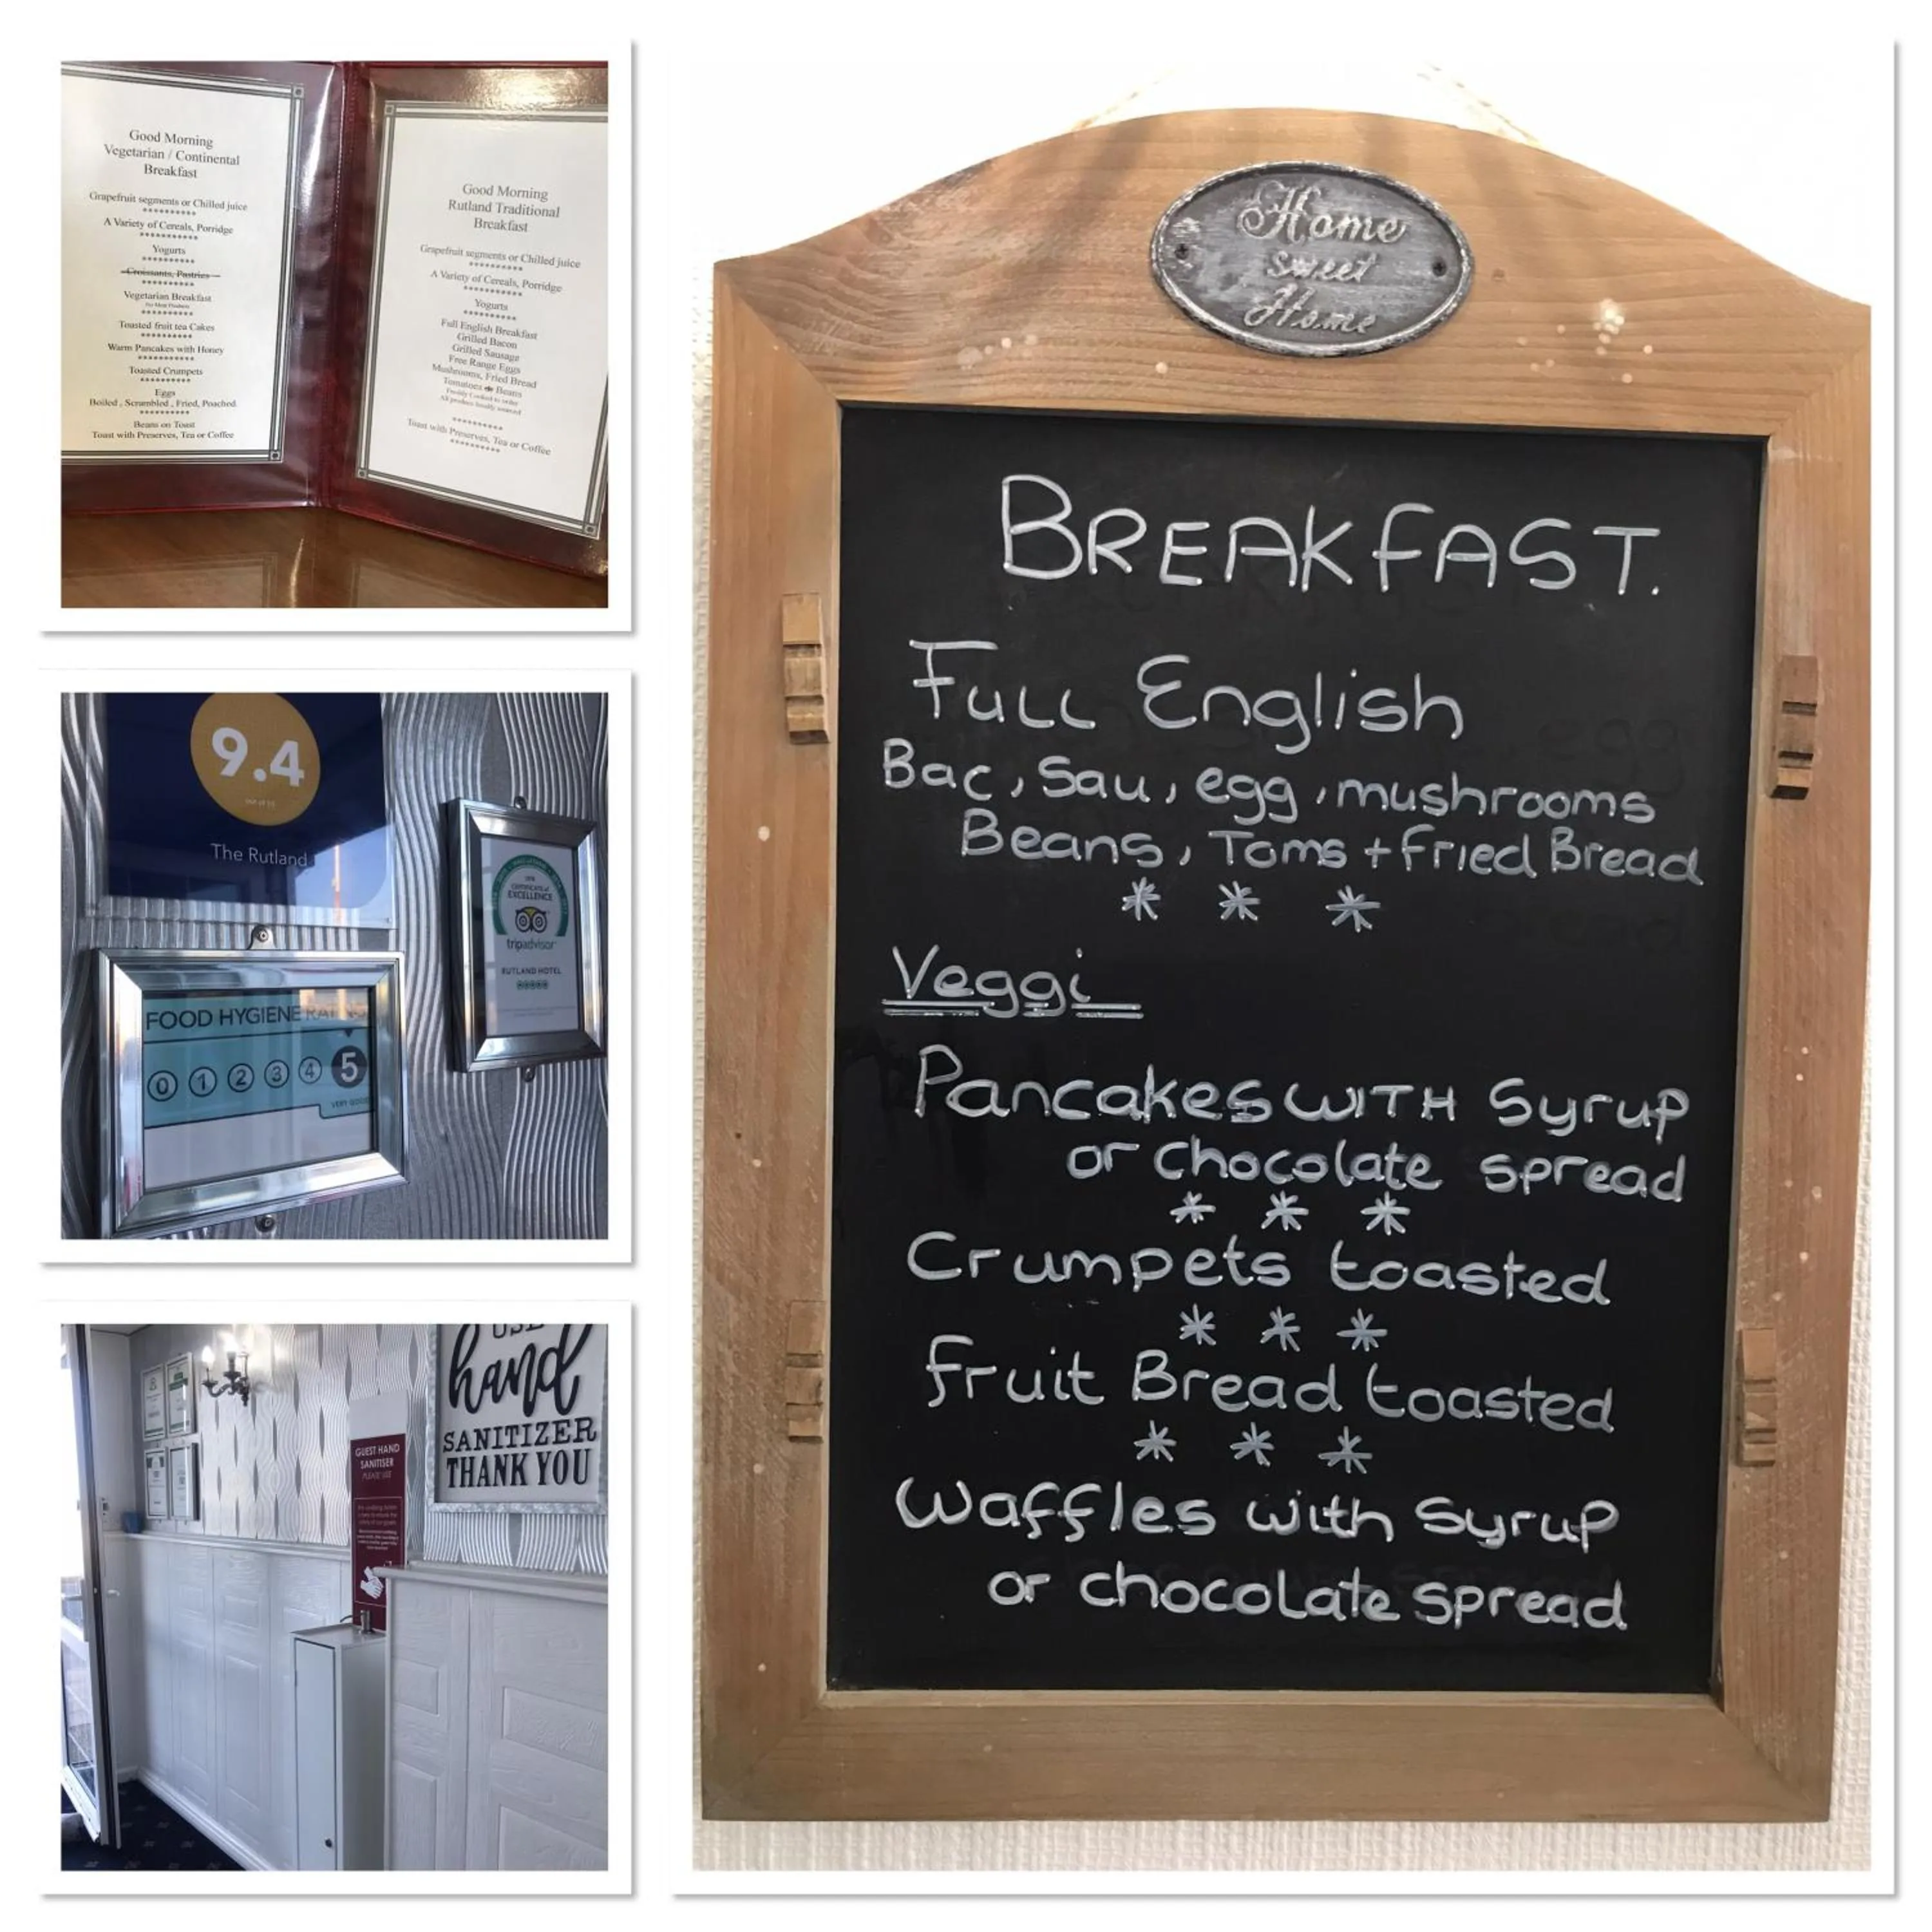 Good Morning
Vegetarian / Continental
Breakfast
Grapefruit segments or Chilled juice
**********
A Variety of Cereals, Porridge
***********
Yogurts
**********
Croissants, Pastries
**********
Vegetarian Breakfast
No Meat Products
**********
Toasted fruit tea Cakes
**********
Warm Pancakes with Honey
***********
Toasted Crumpets
**********
Eggs
Boiled , Scrambled , Fried, Poached
**********
Beans on Toast
Toast with Preserves, Tea or Coffee
Good Morning
Rutland Traditional
Breakfast
Grapefruit segments or Chilled juice
**********
A Variety of Cereals, Porridge
***********
Yogurts
**********
Full English Breakfast
Grilled Bacon
Grilled Sausage
Free Range Eggs
Mushrooms, Fried Bread
Tomatoes Beans
Freshly Cooked to order
All produce locally sourced
**********
Toast with Preserves, Tea or Coffee
**********
9.4
The Rutland
CERTIFICATE of
EXCELLENCE
tripadvisor
RUTLAND HOTEL
FOOD HYGIENE RATING
0 1 2 3 4 5
VERY GOOD
USE
hand
SANITIZER
THANK YOU
GUEST HAND
SANITISER
PLEASE USE
Home
Sweet
Home
BREAKFAST.
Full English
Bac, Sau, egg, mushrooms
Beans, Toms + fried Bread
* * *
Veggi
Pancakes WITH Syrup
or chocolate spread
* * *
Crumpets toasted
* * *
fruit Bread toasted
* * *
Waffles with Syrup
or chocolate spread